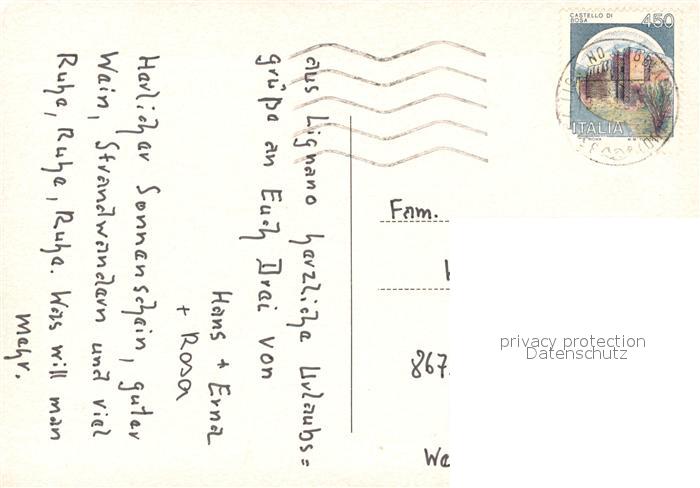 aus Lignano herzliche Urlaubs=
grüße an Euch Drei von
Hans + Erna
+ Rosa
Herlicher Sonnenschein, guter
Wein, Strandwandern und viel
Ruhe, Ruhe, Ruhe. Was will man
mehr.
CASTELLO DI
ROSA
450
ITALIA
Fam.
867
We
privacy protection
Datenschutz